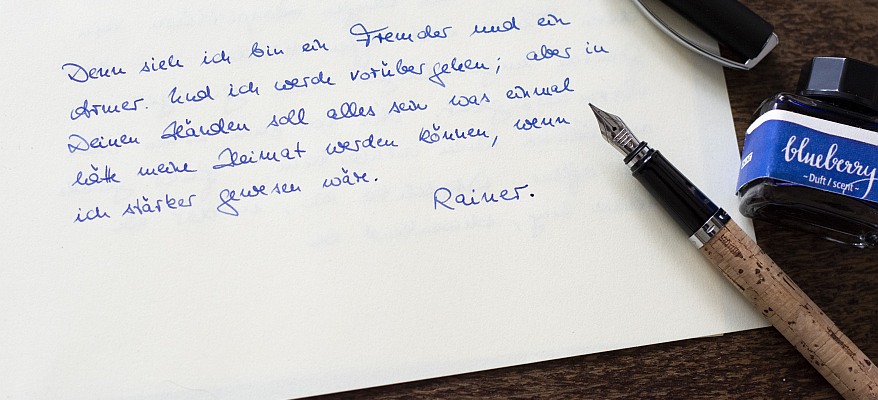 Denn sieh ich bin ein Fremder und ein
Armer. Und ich werde vorübergehen; aber in
Deinen Händen soll alles sein was einmal
hätte meine Heimat werden können, wenn
ich stärker gewesen wäre.
Rainer.
blueberry
- Duft / scent -